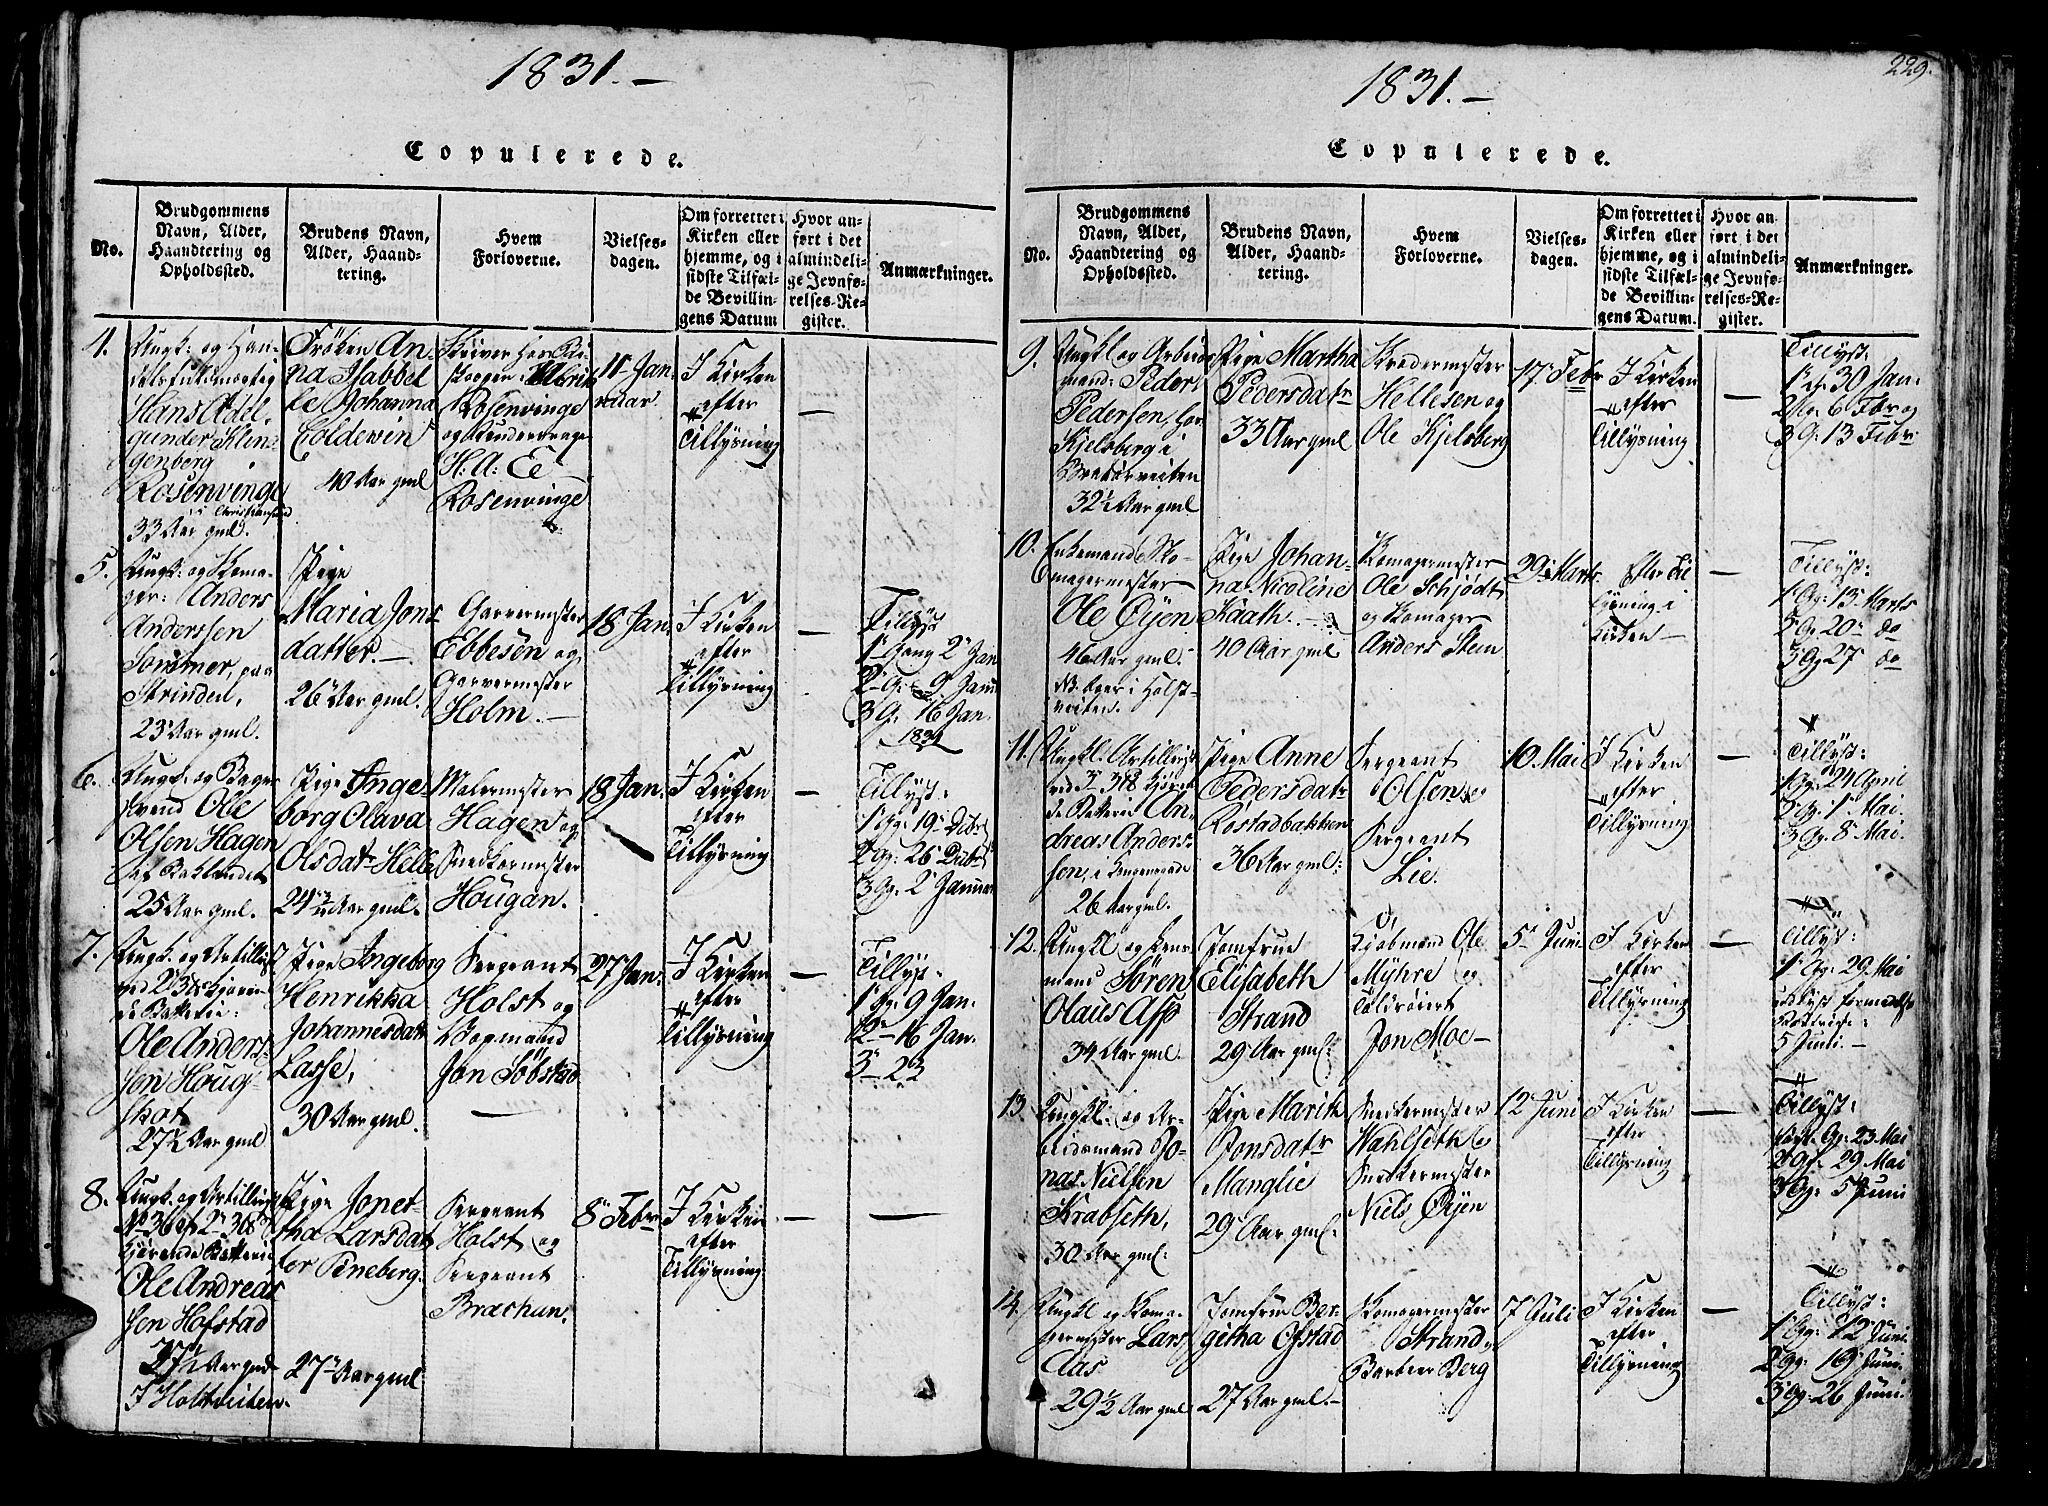 1831.—
Copulerede.
No.
Brudgommens
Navn, Alder,
Haandtering og
Opholdssted.
Brudens Navn,
Alder, Haand-
tering.
Hvem
Forloverne.
Vielses-
dagen.
Om forrettet i
Kirken eller
hjemme, og i
sidste Tilfæl-
de Bevillin-
gens Datum
Hvor an-
ført i det
almindeli-
ge Jevnfø-
relses-Re-
gister.
Anmærkninger.
4.
Ungk: og Han-
Hans Adel-
gunder Klin-
genberg
Rosenvinge
i Christiansund
33 Aar gml.
Frøken An-
na Isabel
le Johanna
Coldewin
40 Aar gml
Rosenvinge
H: A: E
Rosenvinge
11 Jan-
uar
I Kirken
efter
Tillysning
—
5.
Ungk: og Skoma-
ger: Anders
Anderssen
Sorømer, paa
Strinden,
23 Aar gml.
Pige
Maria Jons
datter.—
26 Aar gml.
Garvermester
Ebbesen og
Garvermester
Holm.—
18 Jan.
I Kirken
efter
Tillysning
—
Tillyst
1 Gang 2 Jan
2 G: 9 Janu
3 G: 16 Jan.
1831
6.
Ungk: og Bager
svend Ole
Olsen Hagen
af Baklandet
25 Aar gml.
Pige Inge-
borg Olava
Olsdatr Helle
24 Aar gml.
Malermester
Hagen og
Snedkermester
Hougan.
18 Jan.
I Kirken
efter
Tillysning
—
Tillyst:
1 Gg: 19 Decbr
2 Gg: 26 Decbr
3 Gg: 2 Januar
7.
Ungk. og Artillerist
Ole Anders-
sen Houg-
skot
27½ Aar gml
Pige Ingeborg
Henrikka
Johannesdatr
Lasse,
30 Aar gml.
Sergeant
Holst og
Bogmand
Jon Søbstad
—
27 Jan.
I Kirken
efter
Tillysning
—
Tillyst:
1 Gg: 9 Jan.
2 — 16 Jan.
3 — 23
8.
Ungk. og Artillerist
No 36 af 2 3 ℔
kjørende Batterie
Ole Andreas
sen Hofstad
27½ Aar gml
I Holtveiten.
Pige Jonet-
tha Larsdat
ter Pineberg.
27 Aar gml
Sergeant
Holst og
Sergeant
Brashun.
8 Febr
I Kirken
efter
Tillysning
—
—
229.
1831.—
Copulerede.
No.
Brudgommens
Navn, Alder,
Haandtering og
Opholdssted.
Brudens Navn,
Alder, Haand-
tering.
Hvem
Forloverne.
Vielses-
dagen.
Om forrettet i
Kirken eller
hjemme, og i
sidste Tilfæl-
de Bevillin-
gens Datum.
Hvor an-
ført i det
almindeli-
ge Jevnfø-
relses-Re-
gister.
Anmærkninger.
9.
Ungkl og Arbeids
mand: Peder
Pedersen,
Kjelsberg i
32½ Aar gml
Pige Martha
Pedersdatr
33 Aar gml
Hellesen og
Ole Kjelsberg
17 Febr
I Kirken
efter
Tillysning
—
Tillyst:
1 Gg: 30 Jan.
2 Gg: 6 Fbr og
3 G: 13 Febr:
10.
Enkemand Sko-
magermester
Ole Øyen
46 Aar gml.
NB. boer i Holst-
veiten.
Pige Johan-
na Nicoline
Kaath.—
40 Aar gml
Skomagermester
Ole Schjødt
og Skomager
Anders Steen
29 Marts
Efter Til
lysning i
Kirken —
—
Tillyst:
1 Gg: 13 Marts
2 G: 20 do
3 Gg 27 do
11.
Ungkl. Artillerist
de Batterie An-
dreas Anders-
sen, i Kongensgade
26 Aar gml.
Pige Anne
Pedersdatr
Rostadbakken
36 Aar gml:
Sergeant
Olsen og
Sergeant
Lie.
10 Mai
I Kirken
efter
Tillysning
—
Tillyst:
1 Gg: 24 April
2 Gg: 1 Mai.
3 Gg: 8 Mai.
12.
Ungkl og
mand Sören
Olaus Asp
34 Aar gml.
Jomfrue
Elisabeth
Strand
29 Aar gml:
Kjøbmand Ole
Myhre og
Toldroiert
Jon Moe —
5 Juni
I Kirken
efter
Tillysning
—
Tillyst:
1 Gg: 29 Mai
5 Juni.—
13.
Ungkl: og Ar-
beidsmand Jo-
nas Nielsen
Krabseth,
30 Aar gml.
Pige Marith
Jonsdatr
Manglie
29 Aar gml.
Snedkermester
Wahlseth og
Snedkermester
Niels Øyen
12 Juni
I Kirken
efter
Tillysning
—
Tillyst:
Gg: 23 Mai
2 Gg: 29 Mai
3 Gg: 5 Juni
14.
Ungkl og Skoma-
germester Lars
Aas
29½ Aar gml
Jomfrue Ber-
githa Ofstad
27 Aar gml.—
Skomagermester
Strand,
Barbeer Berg
7 Juli
I Kirken
efter
Tillysning
—
Tillyst:
1 Gg: 12 Juni
2 Gg: 19 Juni.
3 Gg: 26 Juni.